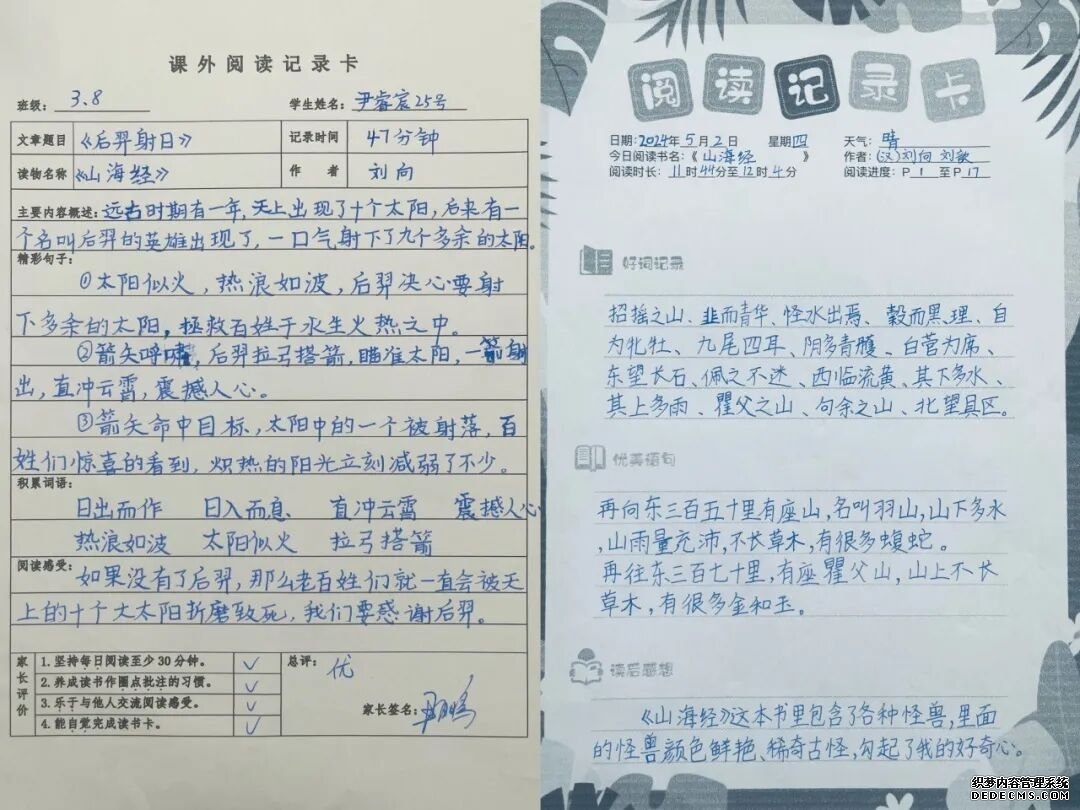 课外阅读记录卡
班级：3.8 学生姓名：尹睿宸25号
文章题目 《后羿射日》 记录时间 47分钟
读物名称 《山海经》 作者 刘向
主要内容概述：远古时期有一年，天上出现了十个太阳，后来有一
个名叫后羿的英雄出现了，一口气射下了九个多余的太阳。
精彩句子：
①太阳似火，热浪如波，后羿决心要射
下多余的太阳，拯救百姓于水生火热之中。
②箭矢呼啸，后羿拉弓搭箭，瞄准太阳，一箭射
出，直冲云霄，震撼人心。
③箭矢命中目标，太阳中的一个被射落，百
姓们惊喜的看到，炽热的阳光立刻减弱了不少。
积累词语：
日出而作 日入而息 直冲云霄 震撼人心
热浪如波 太阳似火 拉弓搭箭
阅读感受：
如果没有了后羿，那么老百姓们就一直会被天
上的十个大太阳折磨致死，我们要感谢后羿。
家长评价
1.坚持每日阅读至少30分钟。 ✓
2.养成读书作圈点批注的习惯。 ✓
3.乐于与他人交流阅读感受。 ✓
4.能自觉完成读书卡。 ✓
总评：优
家长签名：
阅读记录卡
日期：2024年5月2日 星期四 天气：晴
今日阅读书名：《山海经》 作者：(汉)刘向 刘歆
阅读时长：11时44分至12时4分 阅读进度：P1至P17
好词记录
招摇之山、韭而青华、怪水出焉、榖而黑理、自
为牝牡、九尾四耳、阴多青雘、白菅为席、
东望长右、佩之不迷、西临流黄、其下多水、
其上多雨、瞿父之山、句余之山、北望具区。
优美语句
再向东三百五十里有座山，名叫羽山，山下多水
，山雨量充沛，不长草木，有很多蝮蛇。
再往东三百七十里，有座瞿父山，山上不长
草木，有很多金和玉。
读后感想
《山海经》这本书里包含了各种怪兽，里面
的怪兽颜色鲜艳、稀奇古怪，勾起了我的好奇心。
织梦内容管理系统
DEDECMS.COM